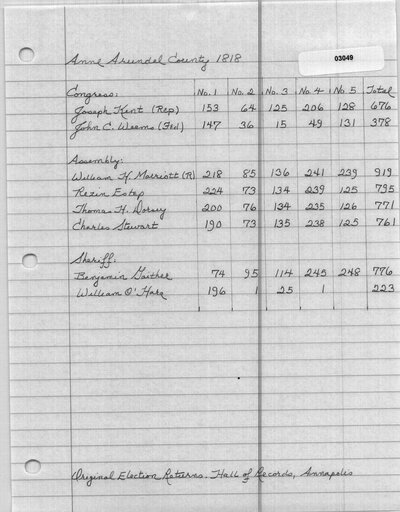 Anne Arundel County 1818
03049
Congress: No. 1 No. 2 No. 3 No. 4 No. 5 Total
Joseph Kent (Rep) 153 64 125 206 128 676
John C. Weems (Fed) 147 36 15 49 131 378
Assembly:
William H. Marriott (R) 218 85 136 241 239 919
Rezin Estep 224 73 134 239 125 795
Thomas H. Dorsey 200 76 134 235 126 771
Charles Stewart 190 73 135 238 125 761
Sheriff:
Benjamin Gaither 74 95 114 245 248 776
William O'Hara 196 1 25 1 223
Original Election Returns. Hall of Records, Annapolis